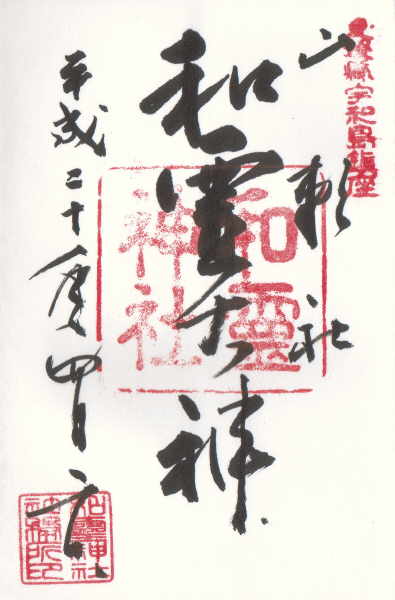 愛媛縣宇和島鎮座
山頼社
和霊大神
和霊
神社
平成二十年四月
和霊神社
社務所印